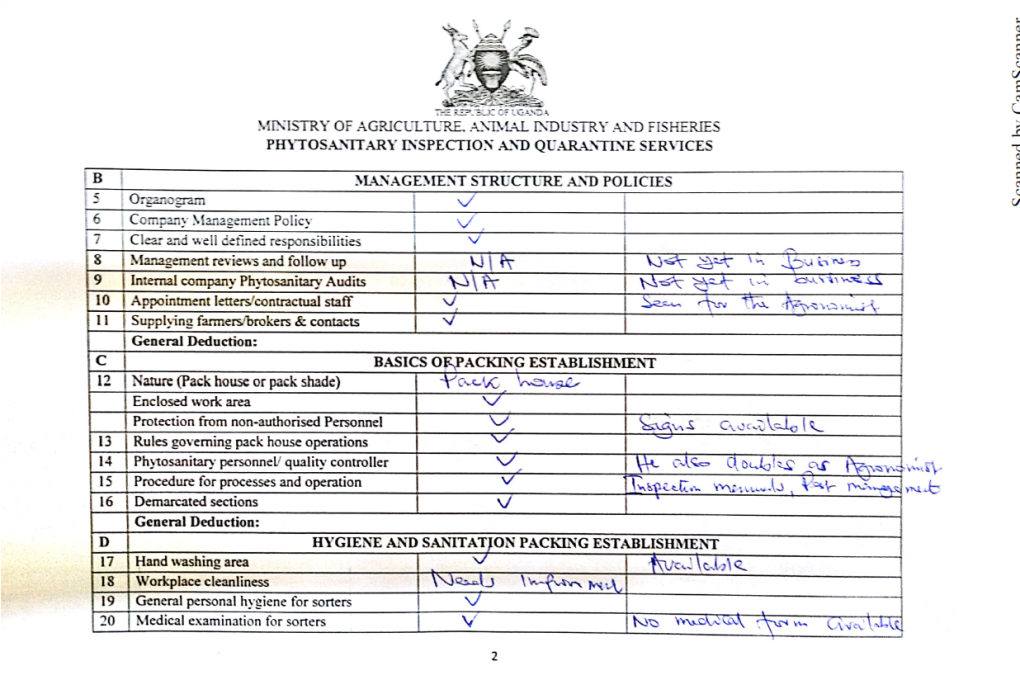 THE REPUBLIC OF UGANDA
MINISTRY OF AGRICULTURE, ANIMAL INDUSTRY AND FISHERIES
PHYTOSANITARY INSPECTION AND QUARANTINE SERVICES
B MANAGEMENT STRUCTURE AND POLICIES
5 Organogram ✓
6 Company Management Policy ✓
7 Clear and well defined responsibilities ✓
8 Management reviews and follow up N/A Not yet in Business
9 Internal company Phytosanitary Audits N/A Not yet in business
10 Appointment letters/contractual staff ✓ Seen for the Agronomist
11 Supplying farmers/brokers & contacts ✓
General Deduction:
C BASICS OF PACKING ESTABLISHMENT
12 Nature (Pack house or pack shade) Pack house
Enclosed work area ✓
Protection from non-authorised Personnel ✓ Signs available
13 Rules governing pack house operations ✓
14 Phytosanitary personnel/ quality controller ✓ He also doubles as Agronomist
15 Procedure for processes and operation ✓ Inspection manuals, management
16 Demarcated sections ✓
General Deduction:
D HYGIENE AND SANITATION PACKING ESTABLISHMENT
17 Hand washing area ✓ Available
18 Workplace cleanliness Needs
19 General personal hygiene for sorters ✓
20 Medical examination for sorters ✓ No medical form available
2
Scanned by CamScanner